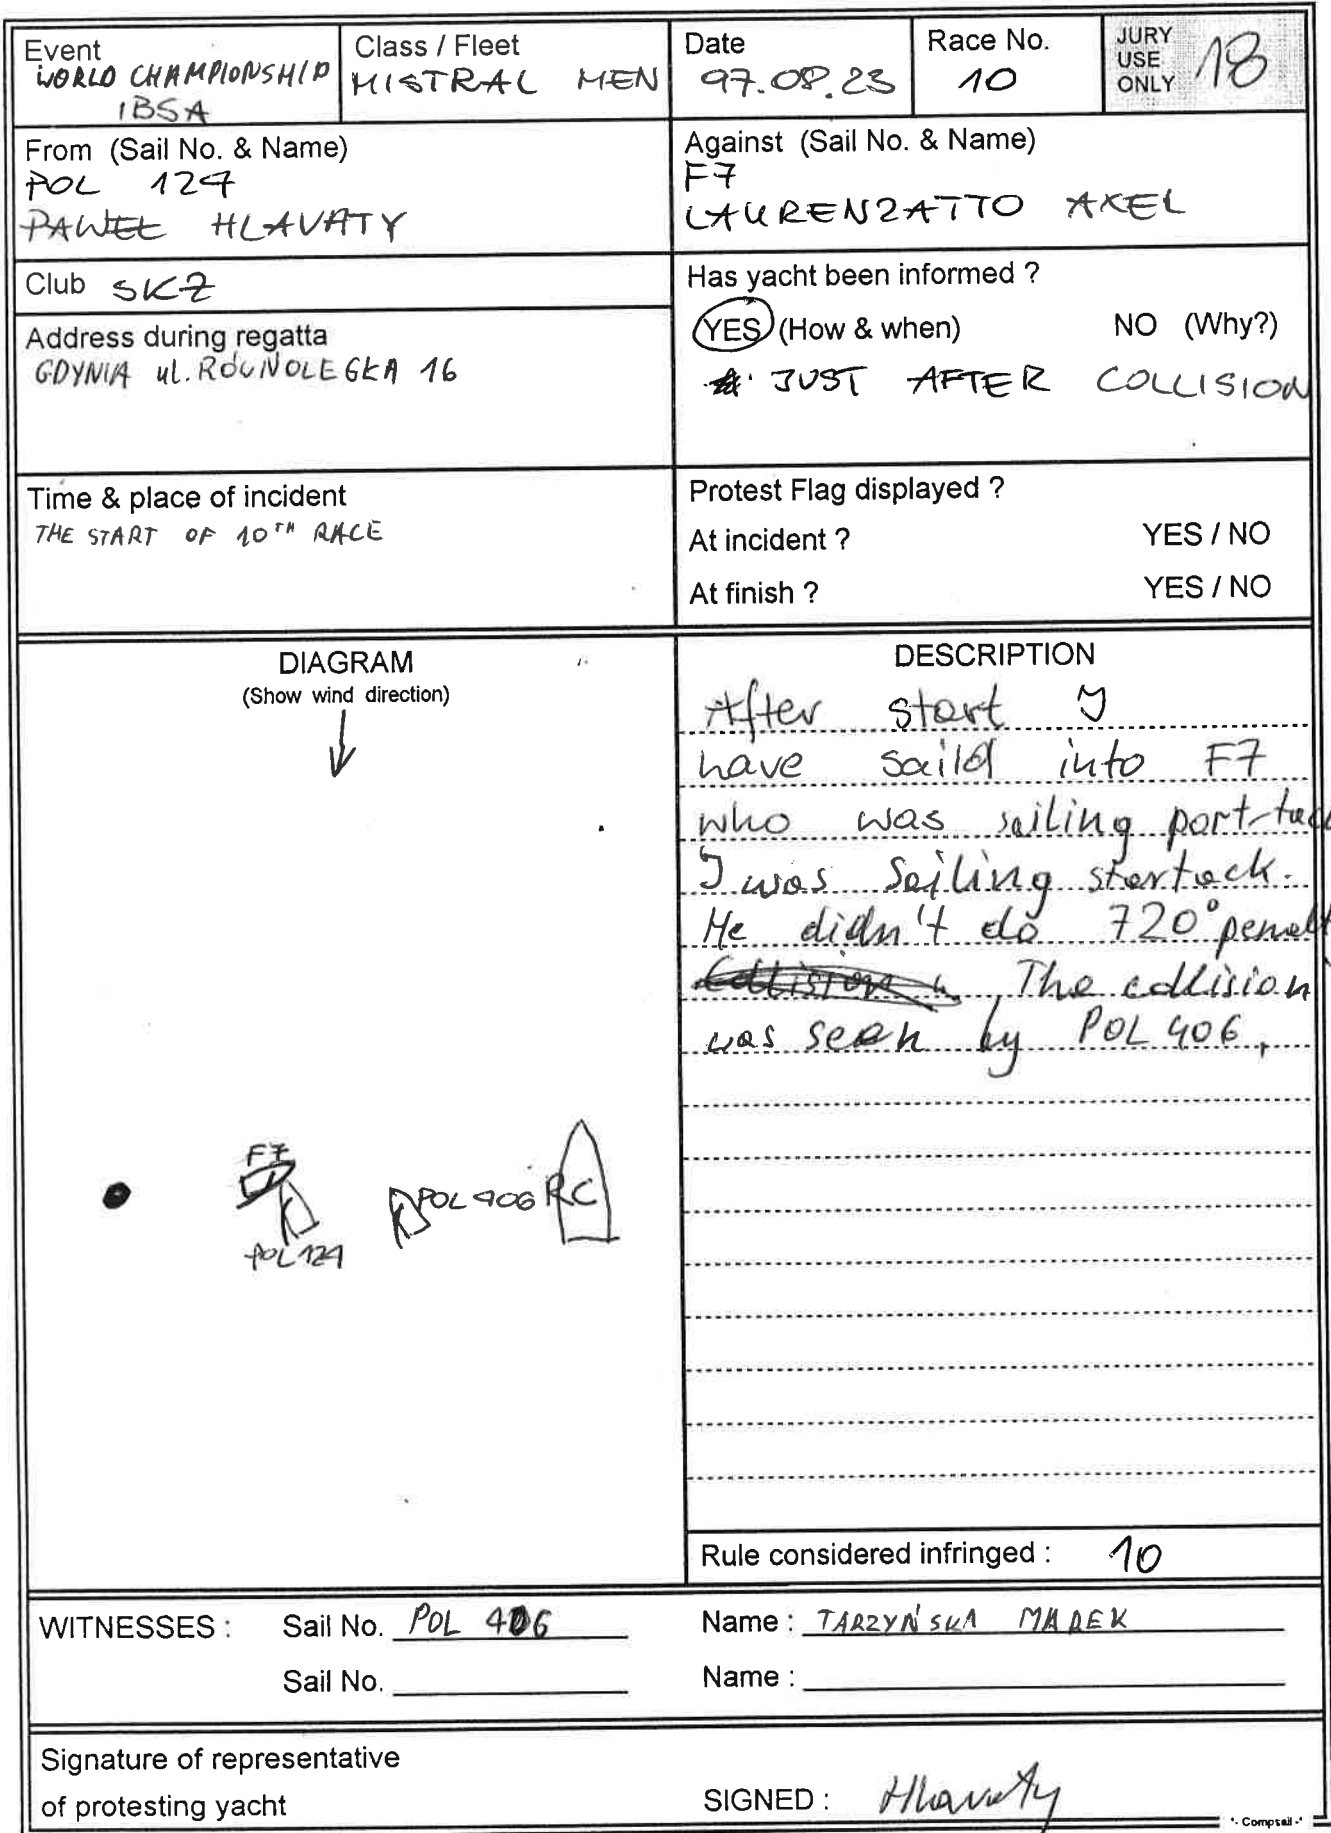 Event
WORLD CHAMPIONSHIP
IBSA
Class / Fleet
MISTRAL MEN
Date
97.08.23
Race No.
10
JURY
USE
ONLY
18
From (Sail No. & Name)
POL 127
PAWEŁ HLAVATY
Against (Sail No. & Name)
F7
LAURENZATTO AXEL
Club SKŻ
Has yacht been informed ?
YES (How & when) NO (Why?)
JUST AFTER COLLISION
Address during regatta
GDYNIA ul. RÓWNOLEGŁA 16
Time & place of incident
THE START OF 10TH RACE
Protest Flag displayed ?
At incident ? YES / NO
At finish ? YES / NO
DIAGRAM
(Show wind direction)
F7
POL 127
POL 406
RC
DESCRIPTION
After start I
have saild into F7
who was sailing port-tack
I was sailing startack.
He didn't do 720° penalt
Collision The collision
was seen by POL 406,
Rule considered infringed : 10
WITNESSES : Sail No. POL 406 Name : TARZYŃSKA MAREK
Sail No. Name :
Signature of representative
of protesting yacht
SIGNED : Hlavaty
- Compsail -